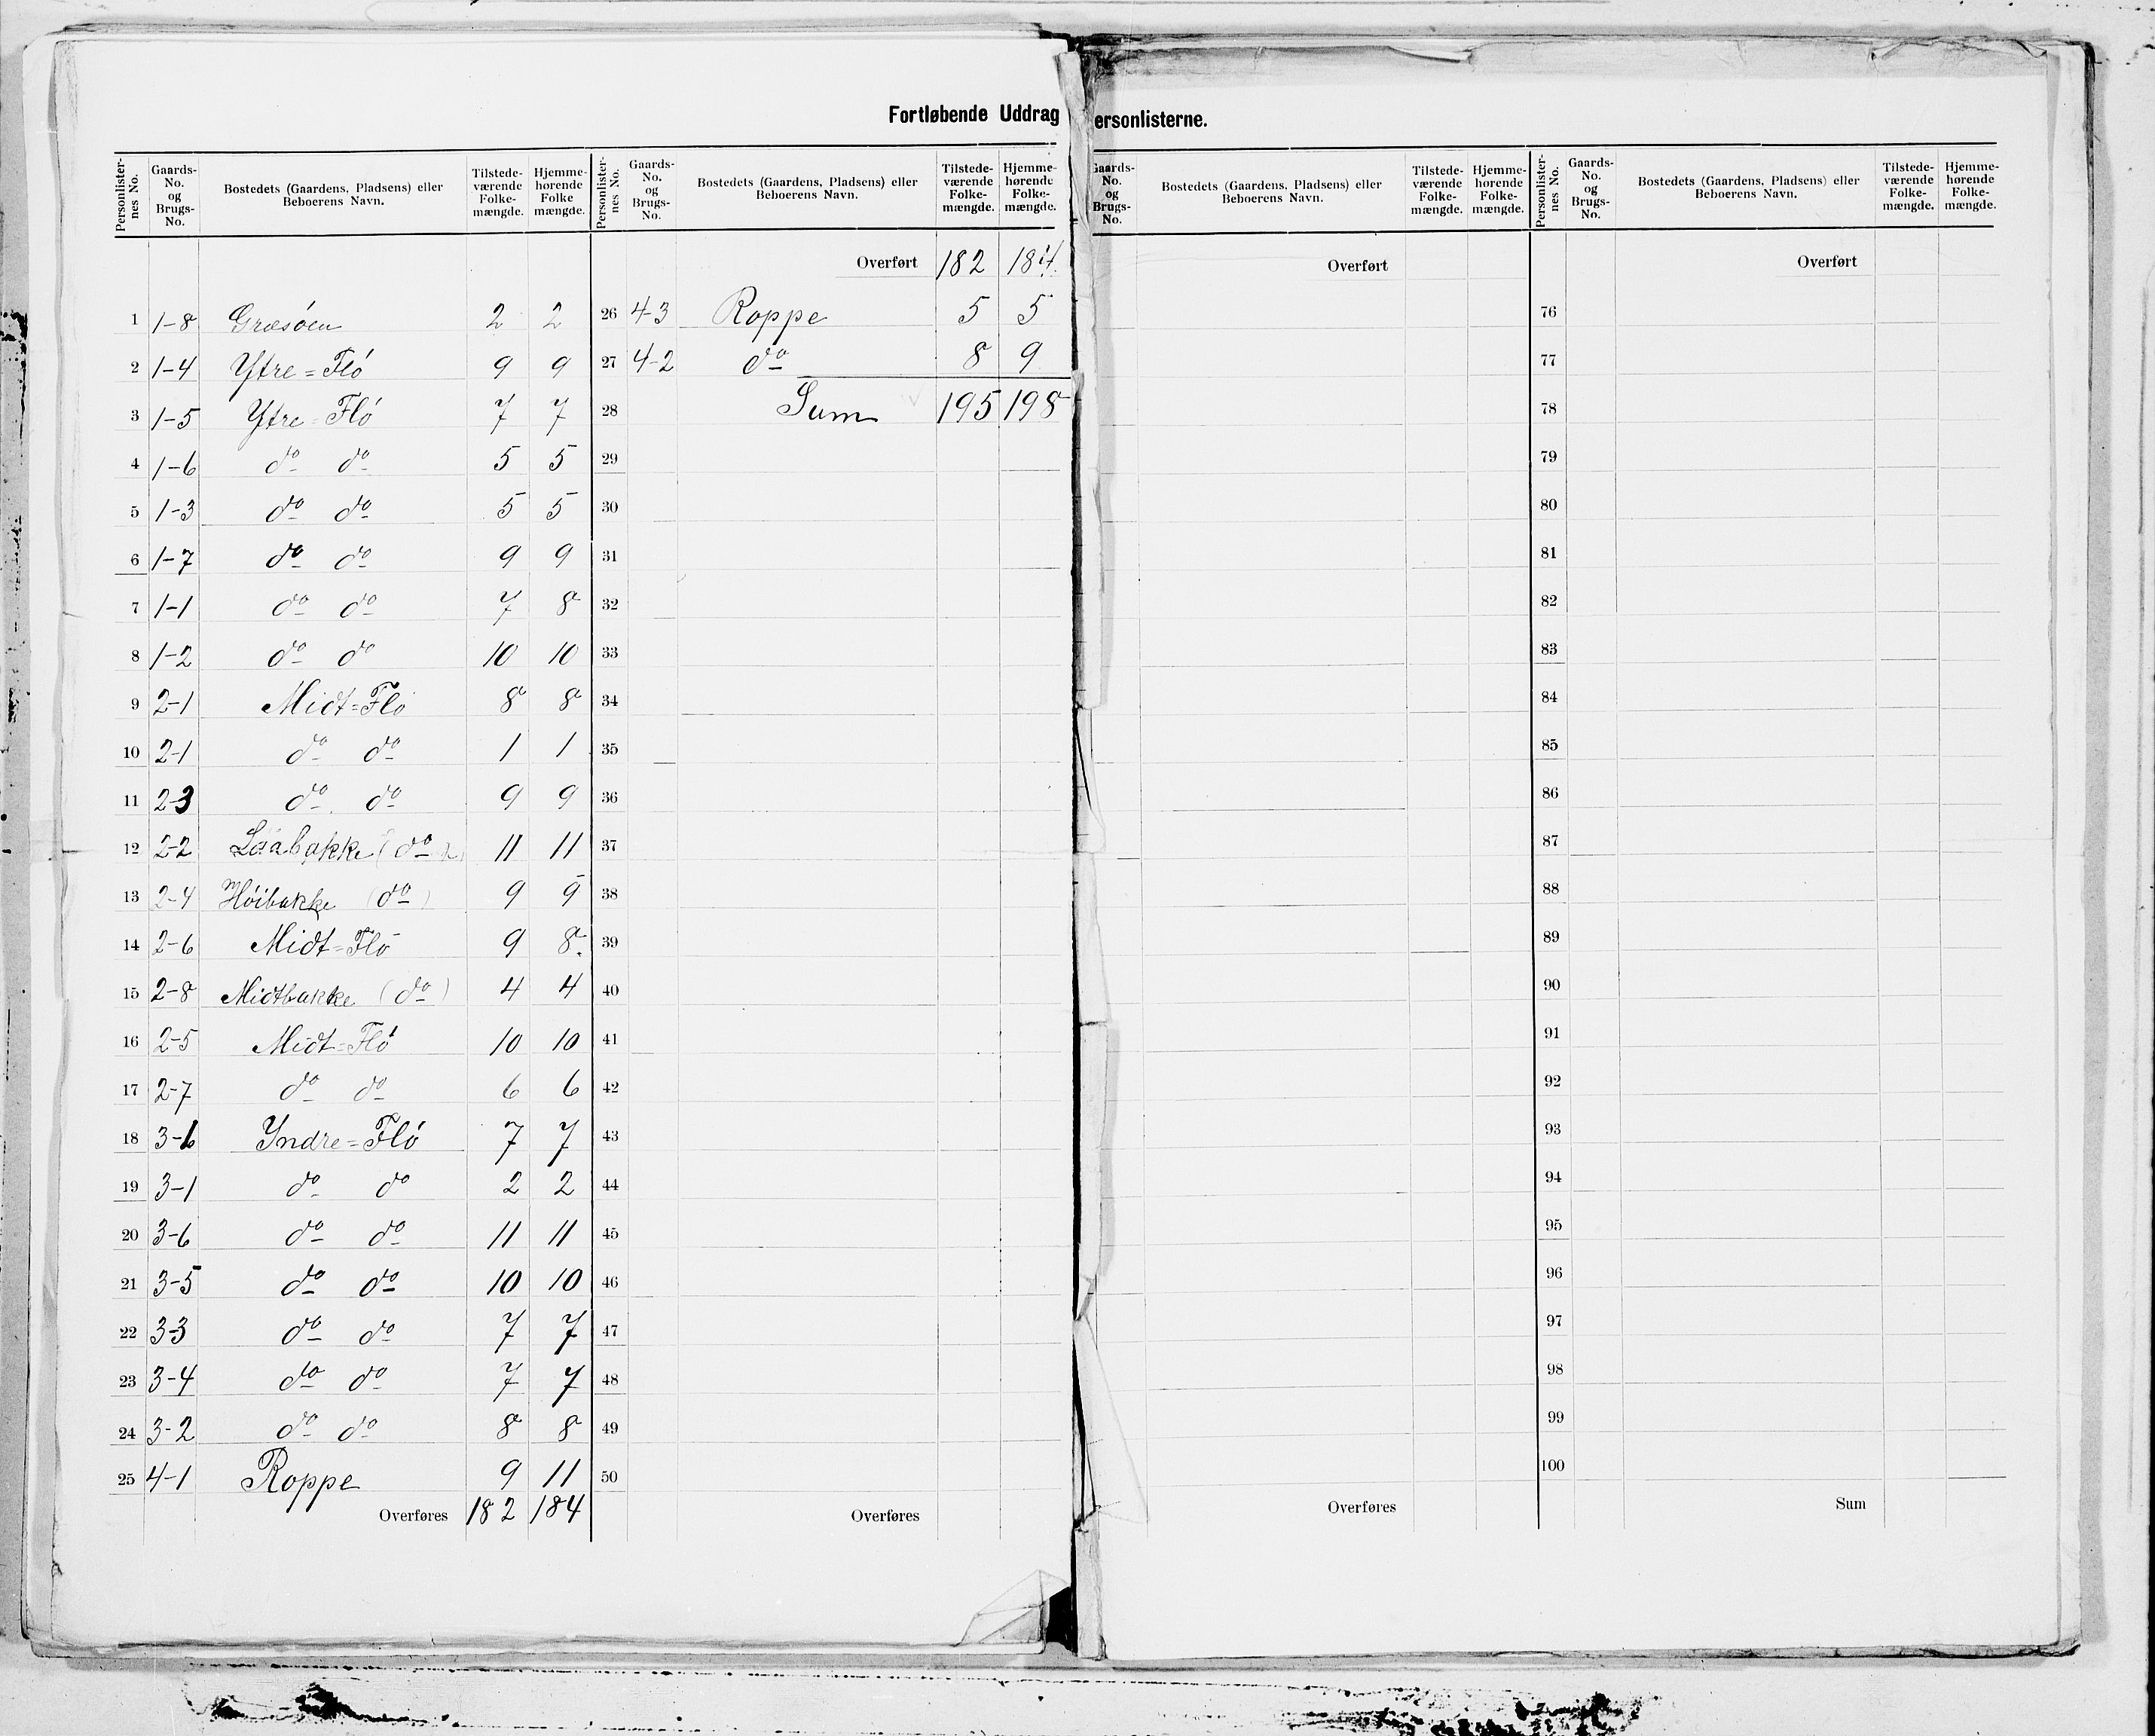 Fortløbende Uddrag ersonlisterne.
Personlister-nes No. Gaards-No. og Brugs-No. Bostedets (Gaardens, Pladsens) eller Beboerens Navn. Tilstede-værende Folke-mængde. Hjemme-hørende Folke mængde.
1 1-8 Græsöen 2 2
2 1-4 Ytre=Fló 9 9
3 1-5 Ytre=Fló 7 7
4 1-6 do do 5 5
5 1-3 do do 5 5
6 1-7 do do 9 9
7 1-1 do do 7 8
8 1-2 do do 10 10
9 2-1 Midt=Fló 8 8
10 2-1 do do 1 1
11 2-3 do do 9 9
12 2-2 (do 11 11
13 2-4 Höibakke (do) 9 9
14 2-6 Midt=Fló 9 8.
15 2-8 Midtbakke (do) 4 4
16 2-5 Midt=Fló 10 10
17 2-7 do do 6 6
18 3-1 Yndre=Fló 7 7
19 3-1 do do 2 2
20 3-6 do do 11 11
21 3-5 do do 10 10
22 3-3 do do 7 7
23 3-4 do do 7 7
24 3-2 do do 8 8
25 4-1 Roppe 9 11
Overføres 182 184
Personlister-nes No. Gaards-No. og Brugs-No. Bostedets (Gaardens, Pladsens) eller Beboerens Navn. Tilstede-værende Folke-mængde. Hjemme-hørende Folke-mængde.
Overført 182 184
26 4-3 Roppe 5 5
27 4-2 do 8 9
28 Sum 195 198
29
30
31
32
33
34
35
36
37
38
39
40
41
42
43
44
45
46
47
48
49
50
Overføres
Gaards-No. og Brugs-No. Bostedets (Gaardens, Pladsens) eller Beboerens Navn. Tilstede-værende Folke-mængde. Hjemme-hørende Folke-mængde.
Overført
Overføres
Personlister-nes No. Gaards-No. og Brugs-No. Bostedets (Gaardens, Pladsens) eller Beboerens Navn. Tilstede-værende Folke-mængde. Hjemme-hørende Folke-mængde.
Overført
76
77
78
79
80
81
82
83
84
85
86
87
88
89
90
91
92
93
94
95
96
97
98
99
100
Sum